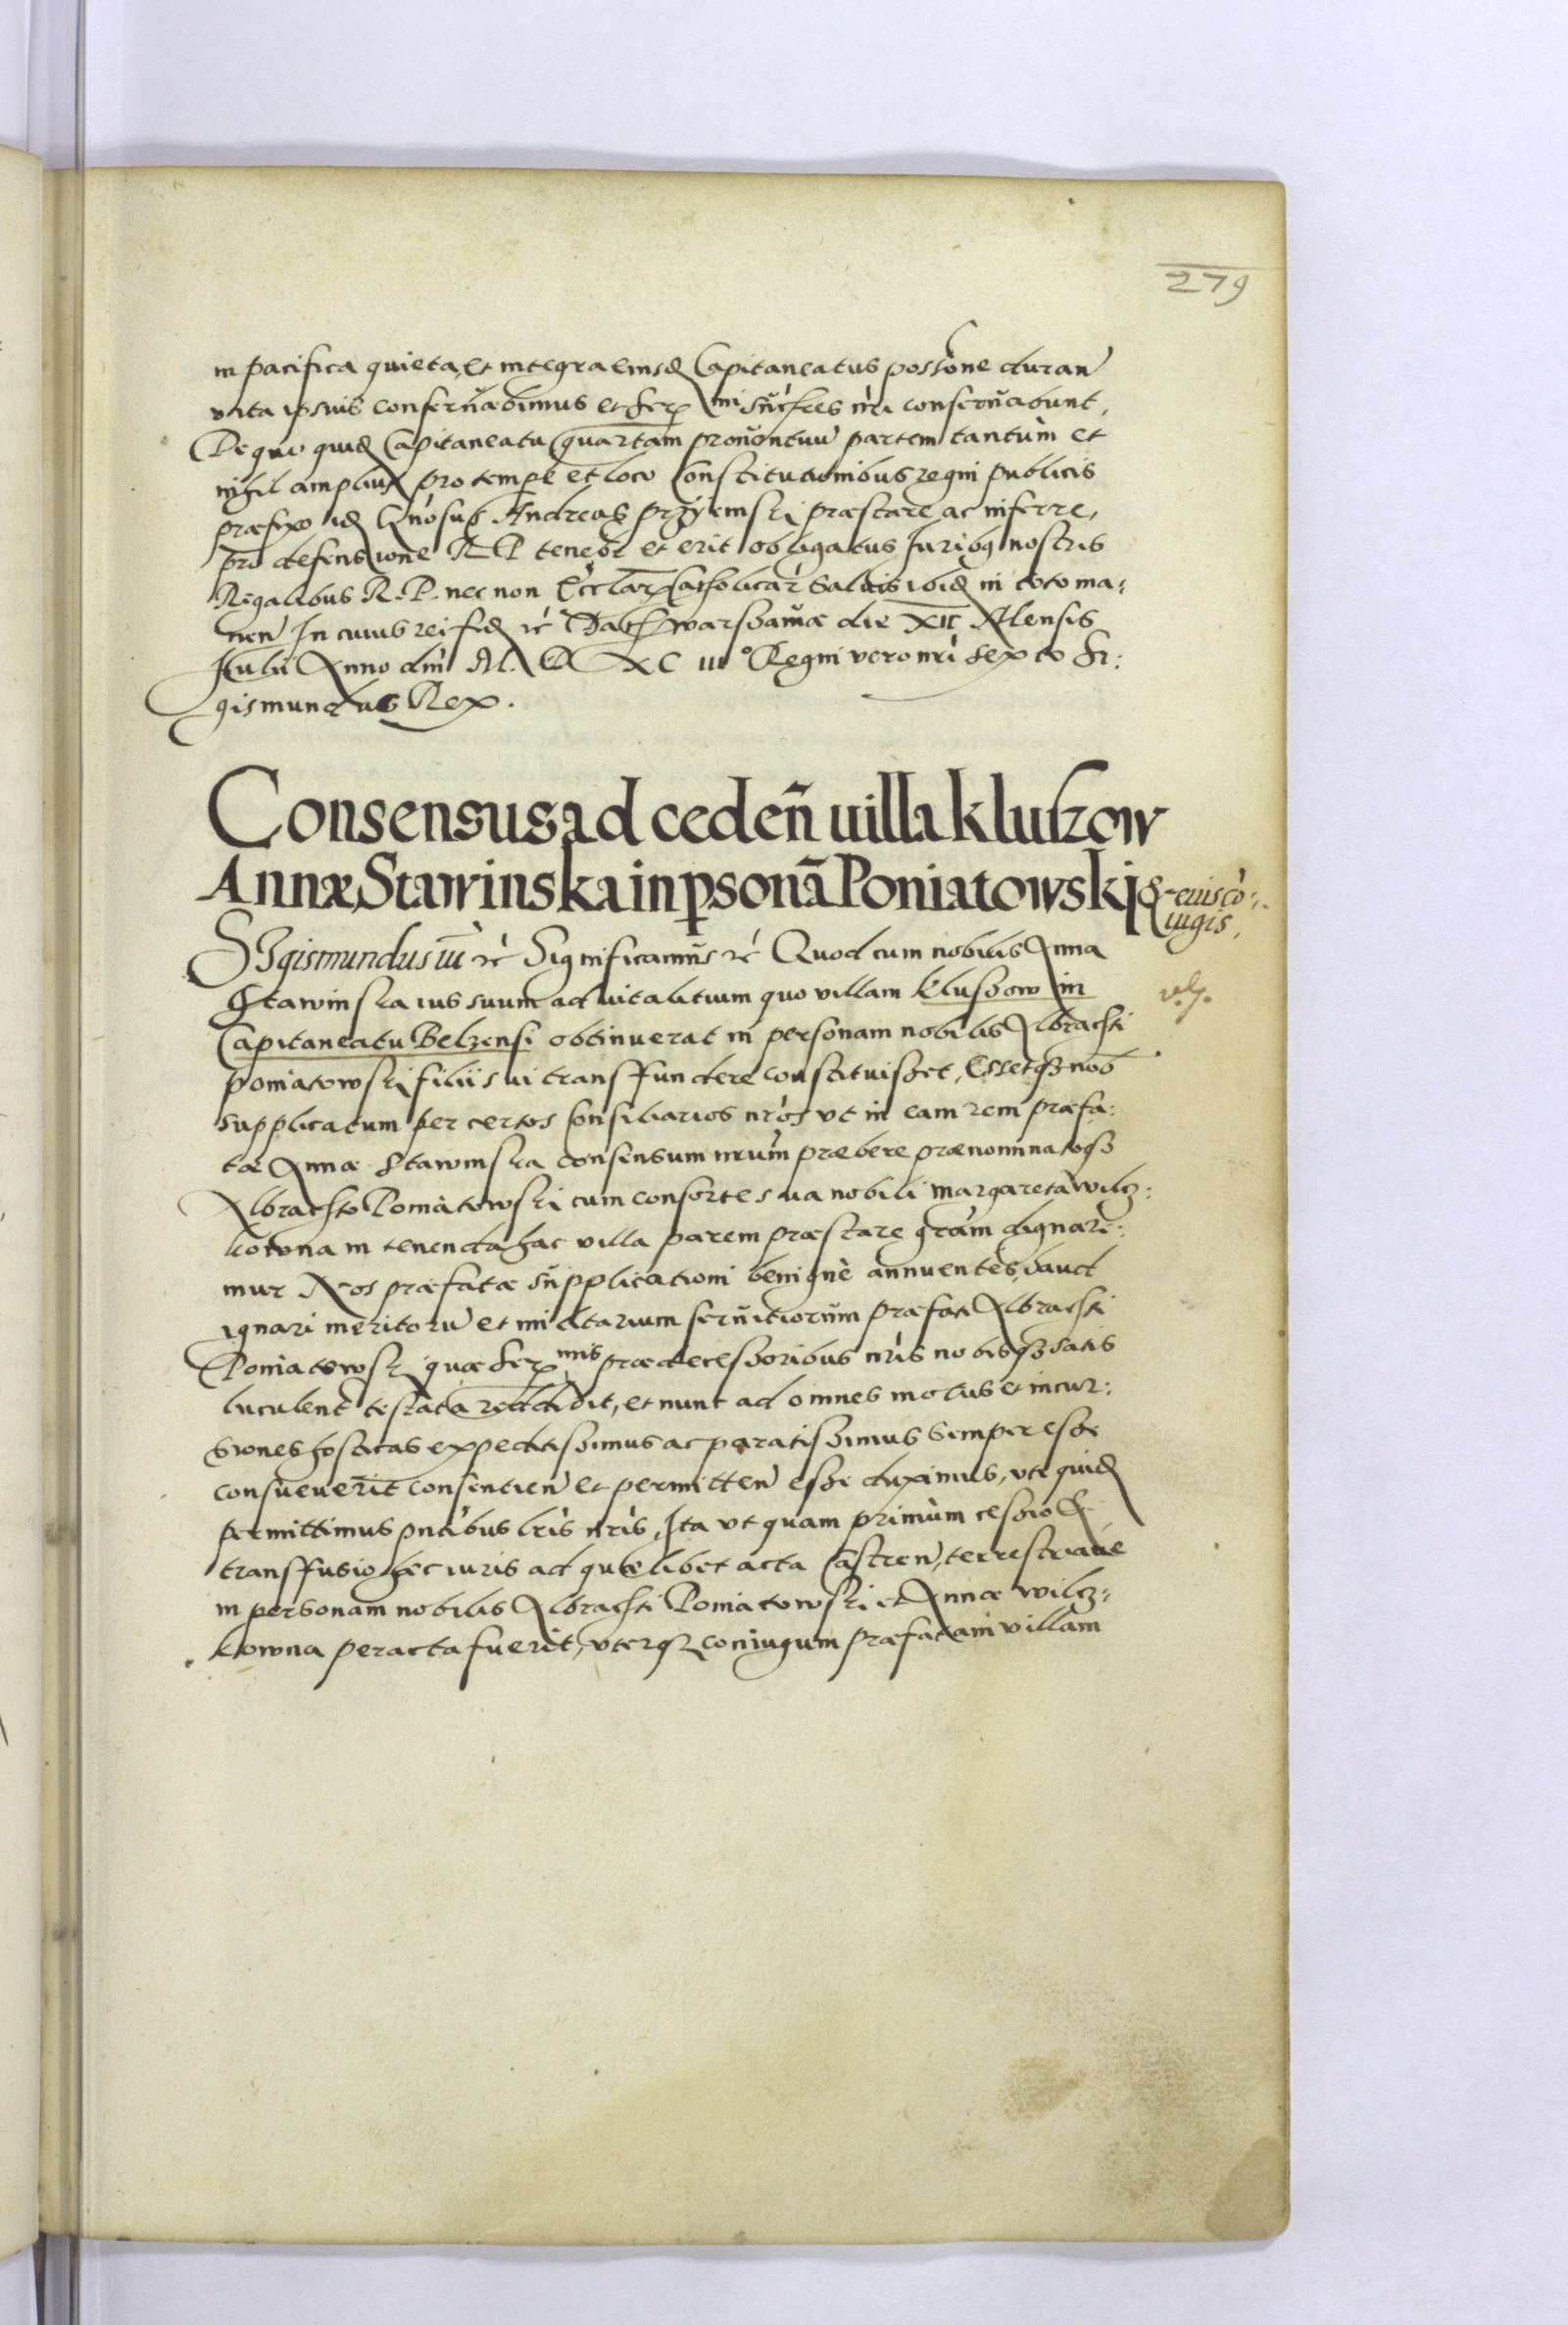 279
in pacifica quieta, et integra eiusd Capitaneatus possōne duran
vita ipsius conseruabimus et Ser mi sūcčes nr̄i conseruabunt,
De quo quid Capitaneatu quartam prouentuū partem tantùm et
nihil amplius pro temp̄e et loco Constitutionibus regni publicis
præfixo id Gn̄osus Andreas Przÿemski præstare ac inferre,
pro defensione R P teneb̄r et erit obligatus Juribq nostris
Regalibus R. P. nec non Eccl̄ar Catholicar̄ saluis ibid in toto ma:
nen̄ In cuius rei fid etc̄ Dat Warssauiæ die XII Mensis
Julii Anno dn̄i M. D XC iii° Regni vero nr̄i sexto Si:
gismundus Rex.
Consensus ad cedeñ uilla kluszow
Annæ Stawinska in psonā Poniatowskj & eius cō:
iugis.
SIgismundus iii etc̄ Significamus etc̄ Quod cum nobilis Anna
Stawinska ius suum aduitalitium quo villam Klussow in
Capitaneatu Belzensi obtinuerat in personam nobilis Albrachti
Poniatowski filii sui transffundere constituisset, Essetqz nob̄
supplicatum per certos Consiliarios nr̄os vt in eam rem præfa:
tæ Annæ Stawinska consensum nr̄um præbere prænominatoqz
Albrachto Poniatowski cum consorte sua nobili Margareta Wilcz:
kowna in tenenda hac villa parem præstare gr̄am dignare:
mur Nos præfatæ supplicationi benignè annuentes, haud
ignari meritorū et militarium seruitiorum præfati Albrachti
Poniatowski quæ Ser mis prædecessoribus nr̄is nobisqz satis
luculent testata reddidit, et nunc ad omnes motus et incur:
siones hosticas expeditissimus ac paratissimus semper esse
consueuerit consentien̄ et permitten̄ esse duximus, vti quid
permittimus pn̄tibus lr̄is nr̄is, Ita vt quam primùm cessio &
transffusio hæc iuris ad quælibet acta Castren̄, terrestriaue
in personam nobilis Albrachti Poniatowski et Annæ Wilcz:
kowna peracta fuerit, vterqz coniugum præfatam villam